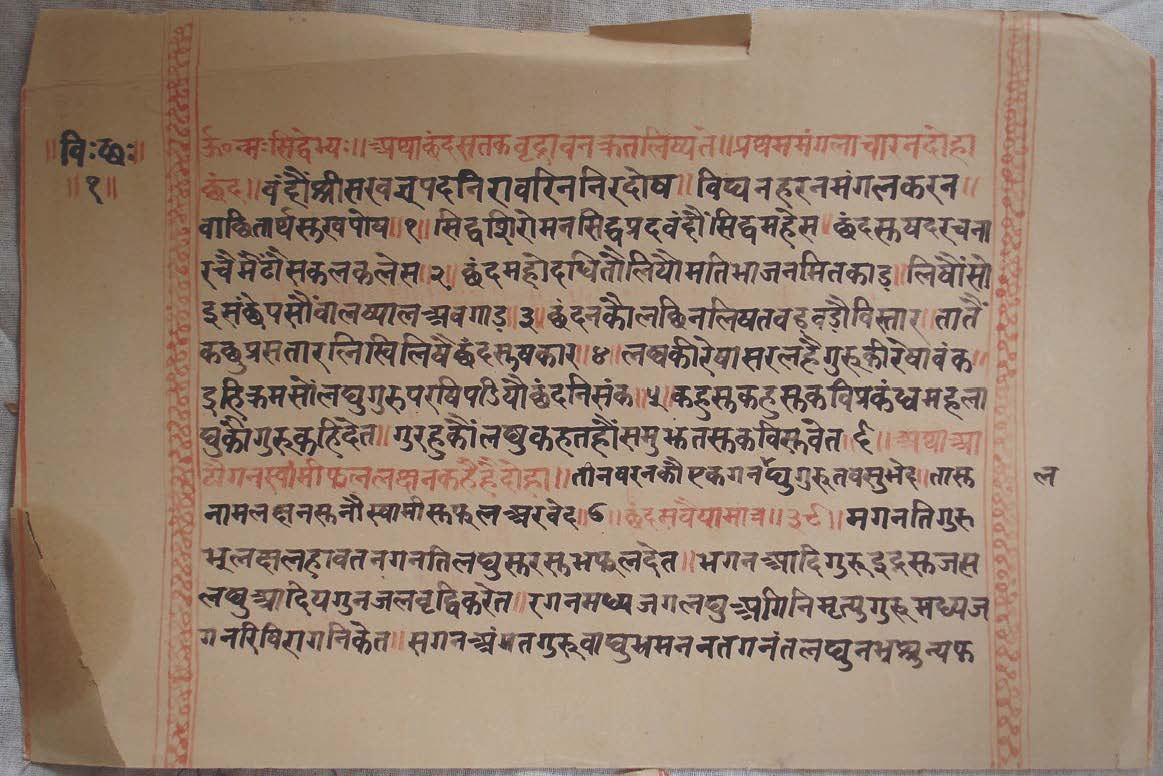 ॥वि॰छ॰॥
॥१॥
ॐनमःसिद्धेभ्यः॥अथछंदसतकवृंदावनकृतलिष्यते॥प्रथममंगलाचारनदोहा
छंद॥वंदौंश्रीसरवज्ञपदनिरावरिननिरदोष॥विघनहरनमंगलकरन
वांछितार्थसुखपोष॥१॥सिद्धशिरोमनसिद्धप्रदवंदौंसिद्धमहेस॥छंदसुखदरचना
रचैमेटौसकलकलेस॥२॥छंदमहोदधितौलियौमतिभाजनमितकाड़॥लिषौंसो
इसंछेपसौंवालष्यालअवगाड़॥३॥छंदनकौलछिनलिषतवढ़वड़ौविस्तार॥तातैं
कछुप्रसतारलिखिलियैछंदसुषकार॥४॥लघकीरेषासरलहैगुरुकीरेषावंक॥
इहिक्रमसौंलघुगुरुपरषिपढ़ियौछंदनिसंक॥५॥कहुसुकहुसुकविप्रकंधमहला
घुकौंगुरुकहिदेत॥गुरहुकौंलघुकहतहौंसमुझतसुकविसुवेत॥६॥अथआ
ठौगनस्वामीफलनलछनकहैहैदोहा॥॥तीनवरनकौएकगनलघुगुरुतवसुभेद॥तासु
ल
नामलछनसुनौस्वामीसुफलअरवेद॥७॥छंदमवैयामात्र॥३१॥मगनतिगुरु
भूलछलहावतनगनतिलघुसुरसुभफलदेत॥भगनआदिगुरुइदुसुजस
लघुआदियगुनजलवृद्धिकरेत॥रगनमध्यजगलघुअगिनिमृत्युगुरुमध्यज
गनरिषिरागनिकेत॥सगनअंतगुरुवायुभ्रमननतगनंतलघुनभसुन्यफ